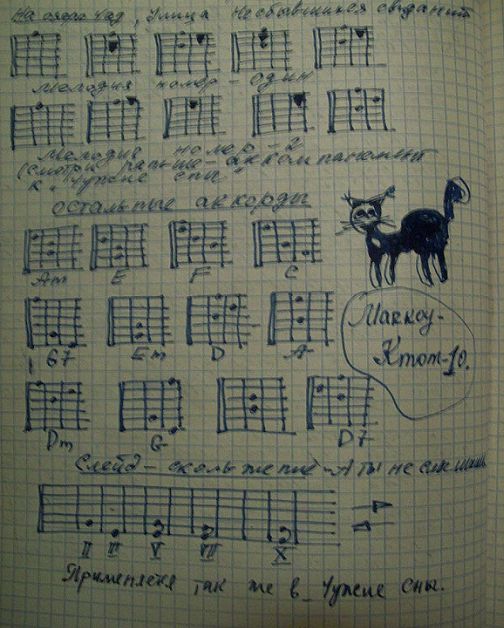 На озере Чад, Улица Несбывшихся свиданий
Мелодия номер - один
Мелодия номер - 2
(смотри раньше - аккомпанемент
к "Чужие сны"
остальные аккорды
Am E F C
G7 Em D A
Маккоу-
Ктот-10.
Dm G D7
Слейд - скольжение - А ты не слышишь
II III V VII X
Применяеся так же в - Чужие сны.